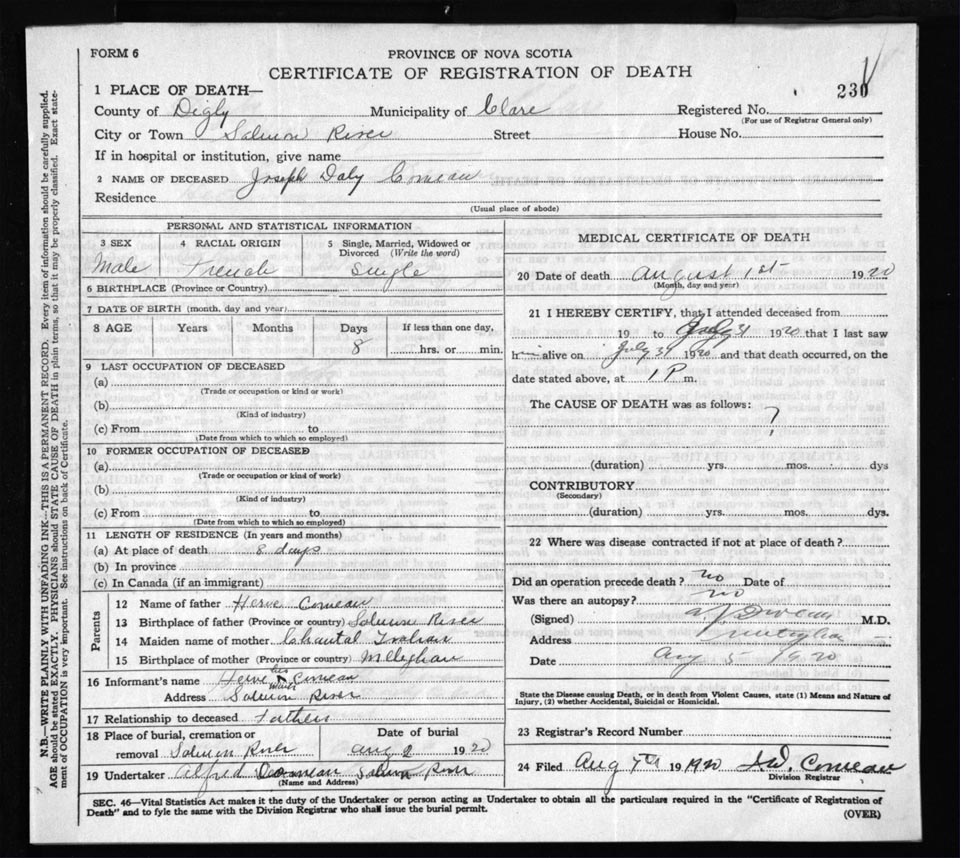 FORM 6
PROVINCE OF NOVA SCOTIA
CERTIFICATE OF REGISTRATION OF DEATH
230
1 PLACE OF DEATH—
County of Digby Municipality of Clare Registered No.
(For use of Registrar General only)
City or Town Salmon River Street House No.
If in hospital or institution, give name
2 NAME OF DECEASED Joseph Daly Comeau
Residence
(Usual place of abode)
PERSONAL AND STATISTICAL INFORMATION
3 SEX 4 RACIAL ORIGIN 5 Single, Married, Widowed or Divorced (Write the word)
Male French Single
6 BIRTHPLACE (Province or Country)
7 DATE OF BIRTH (month, day and year)
8 AGE Years Months Days If less than one day,
8 hrs. or min.
9 LAST OCCUPATION OF DECEASED
(a)
(Trade or occupation or kind or work)
(b)
(Kind of industry)
(c) From to
(Date from which to which so employed)
10 FORMER OCCUPATION OF DECEASED
(a)
(Trade or occupation or kind of work)
(b)
(Kind of industry)
(c) From to
(Date from which to which so employed)
11 LENGTH OF RESIDENCE (In years and months)
(a) At place of death 8 days
(b) In province
(c) In Canada (if an immigrant)
Parents
12 Name of father Herve Comeau
13 Birthplace of father (Province or country) Salmon River
14 Maiden name of mother Chantal
15 Birthplace of mother (Province or country)
16 Informant's name Herve his mark Comeau
Address Salmon River
17 Relationship to deceased Father
18 Place of burial, cremation or Date of burial
removal Salmon River Aug 2 1920
19 Undertaker Alfred Comeau Salmon River
(Name and Address)
MEDICAL CERTIFICATE OF DEATH
20 Date of death August 1st 1920
(Month, day and year)
21 I HEREBY CERTIFY, that I attended deceased from
19 to July 31 1920 that I last saw
him alive on July 31 1920 and that death occurred, on the
date stated above, at 1 P m.
The CAUSE OF DEATH was as follows:
?
(duration) yrs. mos. dys
CONTRIBUTORY
(Secondary)
(duration) yrs. mos. dys.
22 Where was disease contracted if not at place of death?
Did an operation precede death? no Date of
Was there an autopsy? no
(Signed) M.D.
Address
Date Aug 5 1920
State the Disease causing Death, or in death from Violent Causes, state (1) Means and Nature of
Injury, (2) whether Accidental, Suicidal or Homicidal.
23 Registrar's Record Number
24 Filed Aug 7th 19 1920 Comeau
Division Registrar
SEC. 46—Vital Statistics Act makes it the duty of the Undertaker or person acting as Undertaker to obtain all the particulars required in the "Certificate of Registration of
Death" and to fyle the same with the Division Registrar who shall issue the burial permit.
(OVER)
N.B.—WRITE PLAINLY WITH UNFADING INK—THIS IS A PERMANENT RECORD. Every item of information should be carefully supplied.
AGE should be stated EXACTLY. PHYSICIANS should STATE CAUSE OF DEATH in plain terms, so that it may be properly classified. Exact state-
ment of OCCUPATION is very important. See instructions on back of Certificate.